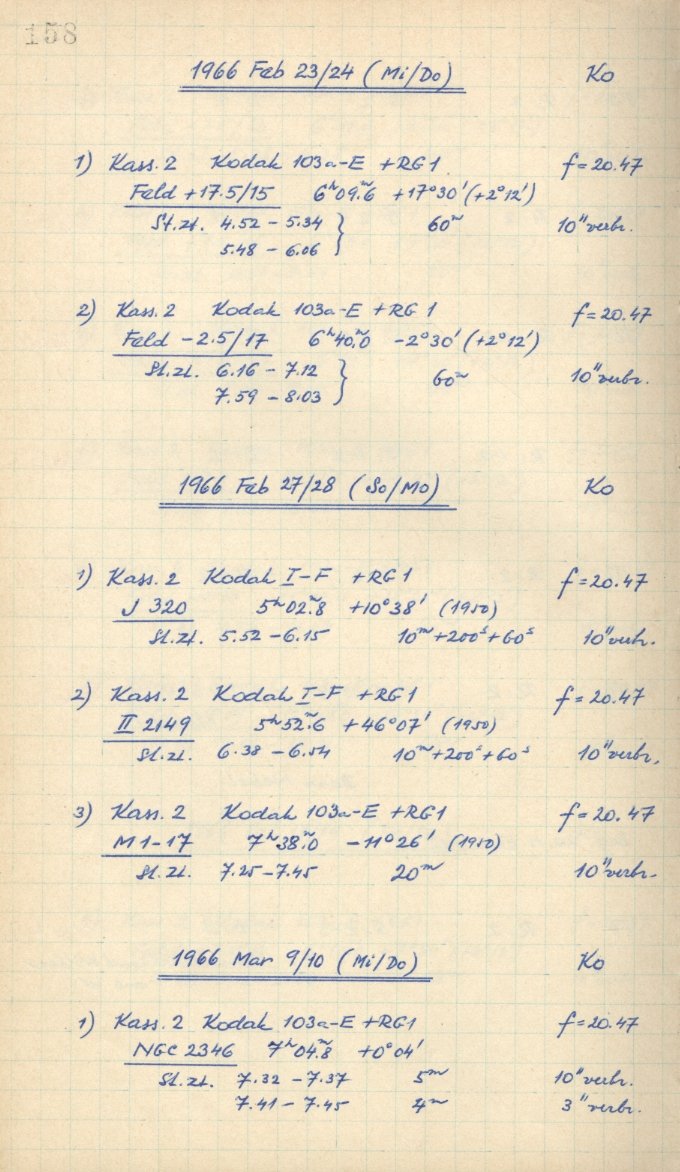 158
1966 Feb 23/24 (Mi/Do) Ko
1) Kass. 2 Kodak 103a-E +RG1 f=20.47
Feld +17.5/15 6ʰ09.ᵐ6 +17°30' (+2°12')
St.zt. 4.52 – 5.34 } 60ᵐ 10" verbr.
5.48 – 6.06
2) Kass. 2 Kodak 103a-E +RG1 f=20.47
Feld -2.5/17 6ʰ40.ᵐ0 -2°30' (+2°12')
St.zt. 6.16 – 7.12 } 60ᵐ 10" verbr.
7.59 – 8.03
1966 Feb 27/28 (So/Mo) Ko
1) Kass. 2 Kodak I-F +RG1 f=20.47
J 320 5ʰ02.ᵐ8 +10°38' (1950)
St.zt. 5.52 – 6.15 10ᵐ+200ˢ+60ˢ 10" verbr.
2) Kass. 2 Kodak I-F +RG1 f=20.47
II 2149 5ʰ52.ᵐ6 +46°07' (1950)
St.zt. 6.38 – 6.54 10ᵐ+200ˢ+60ˢ 10" verbr.
3) Kass. 2 Kodak 103a-E +RG1 f=20.47
M1-17 7ʰ38.ᵐ0 -11°26' (1950)
St.zt. 7.25 – 7.45 20ᵐ 10" verbr.
1966 Mar 9/10 (Mi/Do) Ko
1) Kass. 2 Kodak 103a-E +RG1 f=20.47
NGC 2346 7ʰ04.ᵐ8 +0°04'
St.zt. 7.32 – 7.37 5ᵐ 10" verbr.
7.41 – 7.45 4ᵐ 3" verbr.